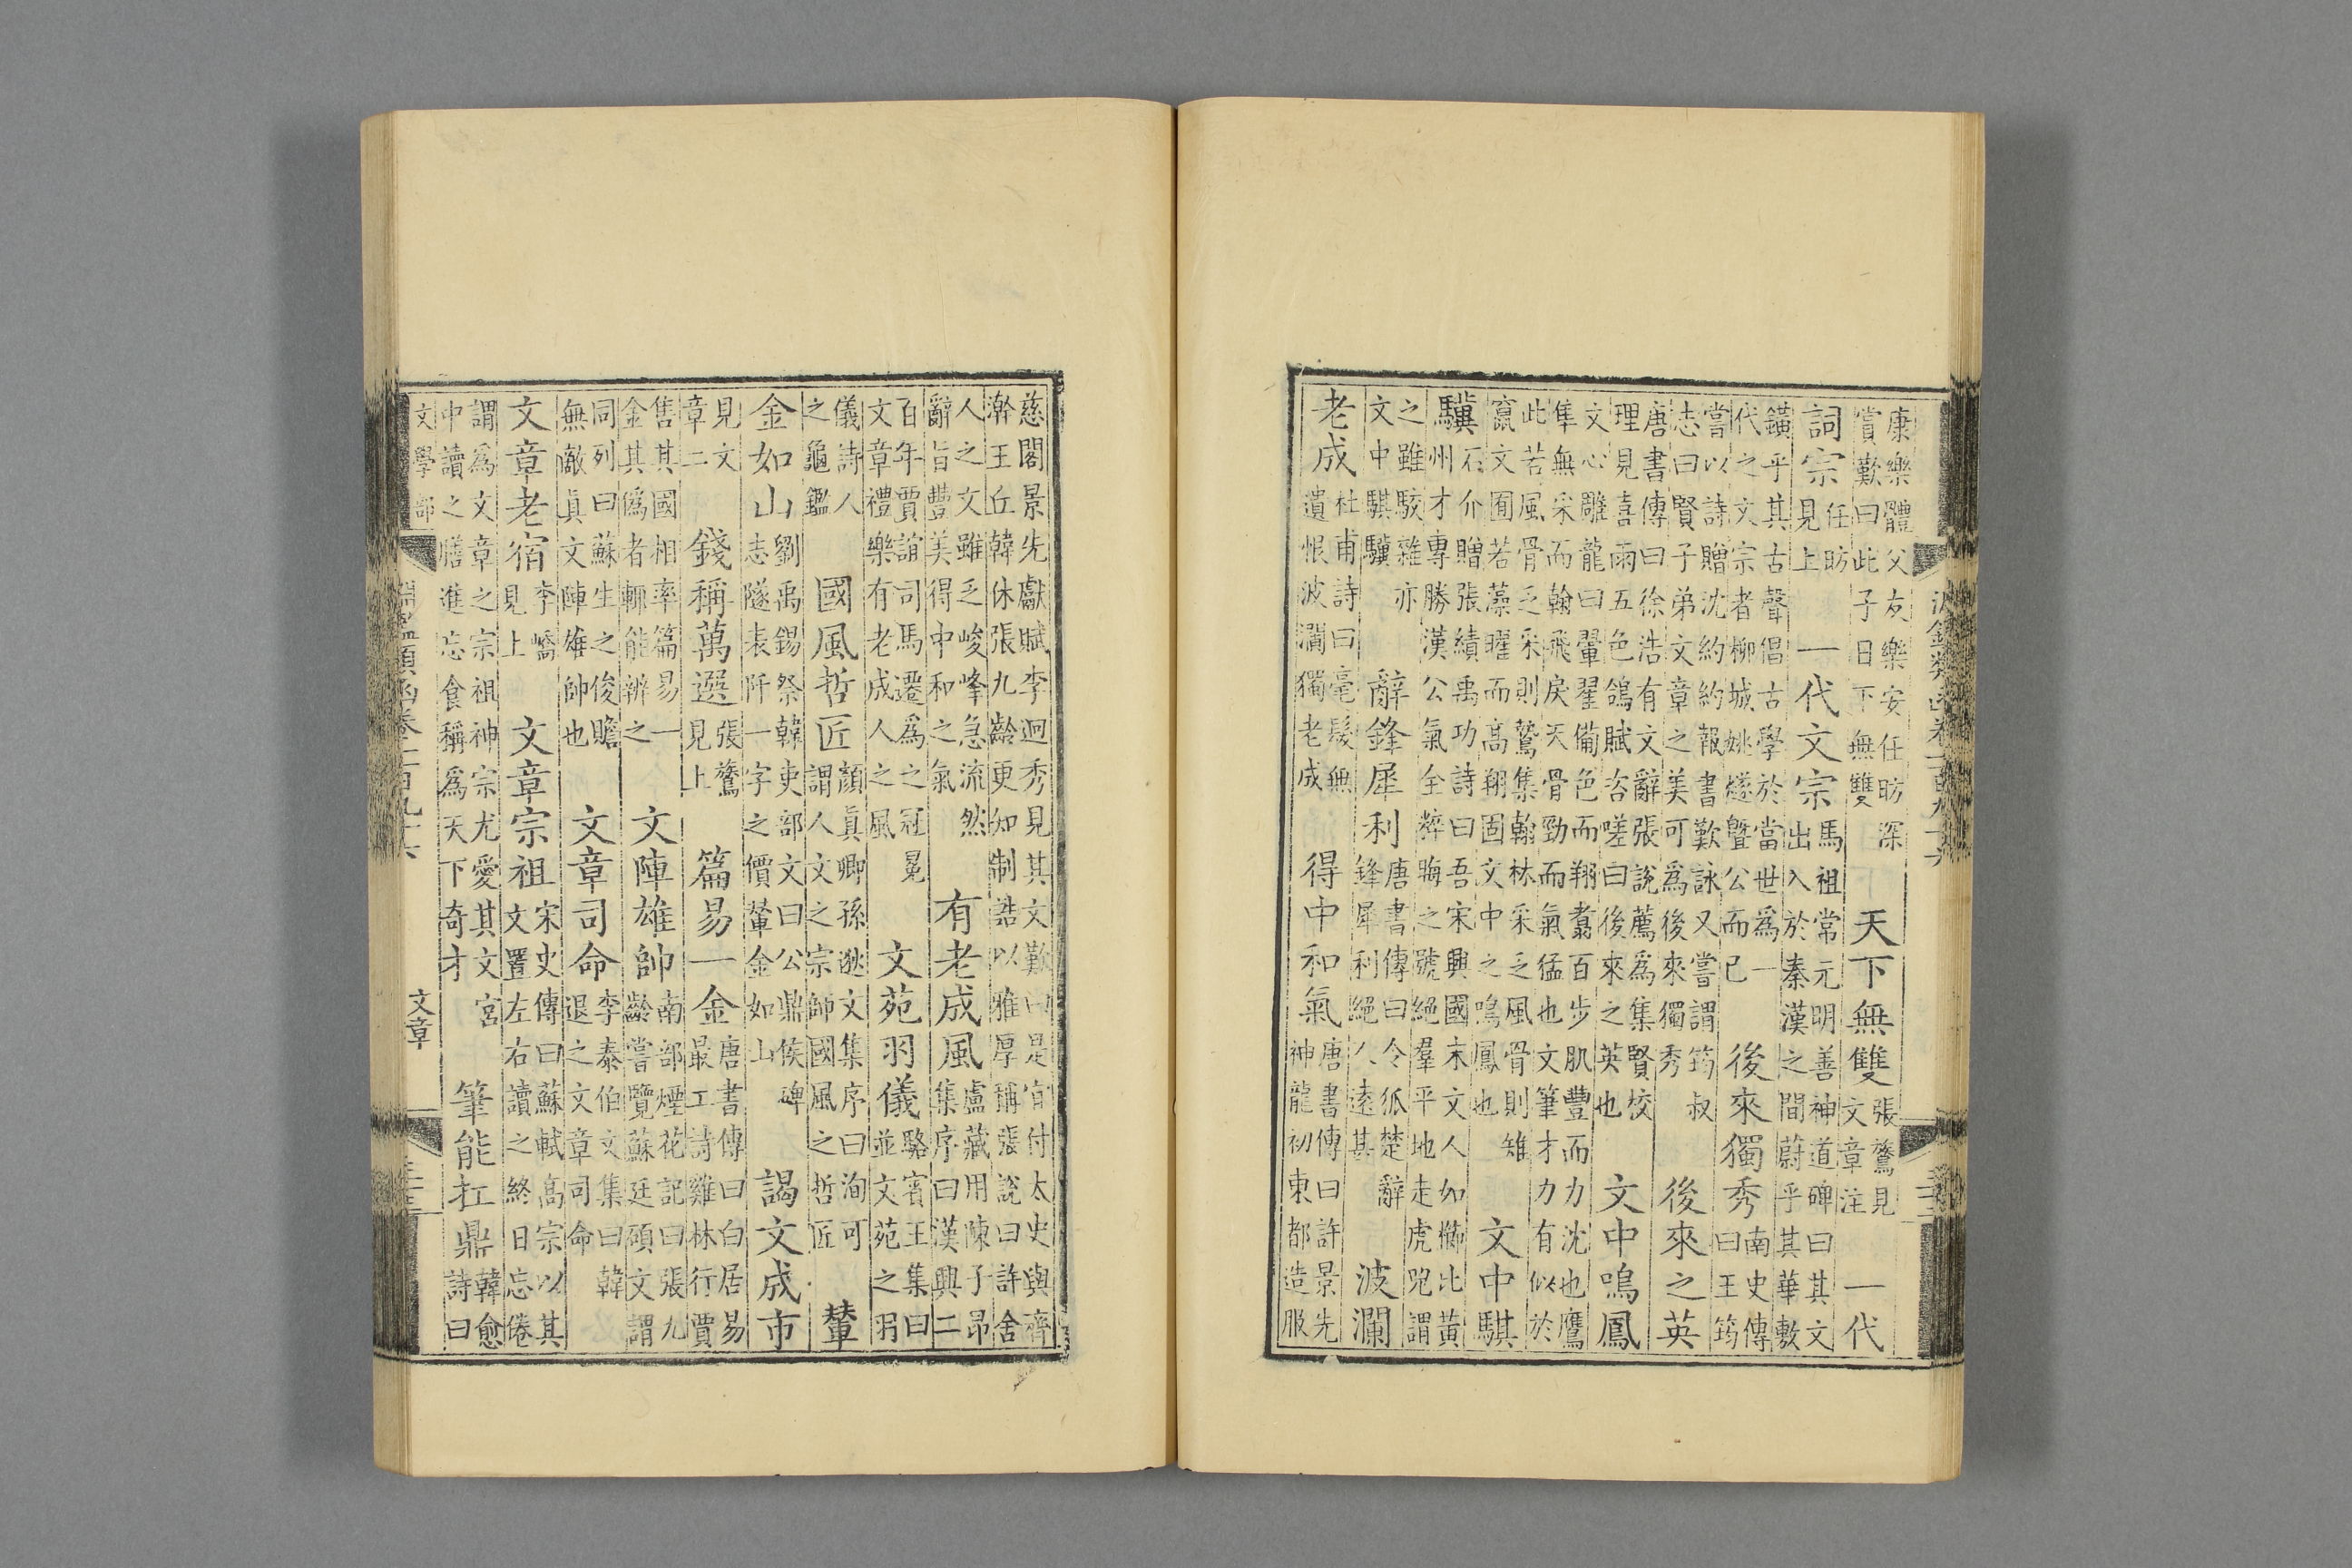 康樂體父友樂安任昉深賞歎曰此子日下無雙 天下無雙 張鷟見文章注 一代
詞宗 任昉見上 一代文宗 馬祖常元明善神道碑曰其文出入於秦漢之間蔚乎其華敷
鏌乎其古聲倡古學於當世爲一代之文宗者柳城姚燧曁公而已 後來獨秀 南史傳曰王筠
嘗以詩贈沈約約報書歎詠又嘗謂筠叔志曰賢子弟文章之美可爲後來獨秀 後來之英
唐書傳曰徐浩有文辭張說薦爲集賢校理見喜雨五色鴿賦咨嗟曰後來之英也 文中鳴鳳
文心雕龍曰翬翟備色而翔翥百步肌豐而力沈也鷹隼無采而翰飛戾天骨勁而氣猛也文筆才力有似於
此若風骨乏采則鷙集翰林采乏風骨則雉竄文囿若藻曜而高翔固文中之鳴鳳也 文中騏
驥 石介贈張績禹功詩曰吾宋興國來文人如櫛比黃州才專勝漢公氣全粹晦之號絕羣平地走虎兕謂
之雖駮雜亦文中騏驥 辭鋒犀利 唐書傳曰令狐楚辭鋒犀利絕人遠甚 波瀾
老成 杜甫詩曰毫髮無遺恨波瀾獨老成 得中和氣 唐書傳曰許景先神龍初東都造服
慈閣景先獻賦李迥秀見其文歎曰是宜付太史與齊澣王丘韓休張九齡更知制誥以雅厚稱張說曰許舍
人之文雖乏峻峰急流然辭旨豐美得中和之氣 有老成風 盧藏用陳子昂集序曰漢興二
百年賈誼司馬遷爲之冠冕文章禮樂有老成人之風 文苑羽儀 駱賓王集曰並文苑之羽
儀詩人之龜鑑 國風哲匠 顏眞卿孫逖文集序曰洵可謂人文之宗師國風之哲匠 輦
金如山 劉禹錫祭韓吏部文曰公鼎侯碑志隧表阡一字之價輦金如山 謁文成市
見文章二 錢稱萬選 張鷟見上 篇易一金 唐書傳曰白居易最工詩雞林行賈
售其國相率篇易一金其僞者輒能辨之 文陣雄帥 南部煙花記曰張九齡嘗覽蘇廷碩文謂
同列曰蘇生之俊贍無敵眞文陣雄帥也 文章司命 李泰伯文集曰韓退之文章司命
文章老宿 李嶠見上 文章宗祖 宋史傳曰蘇軾高宗以其文置左右讀之終日忘倦
謂爲文章之宗祖神宗尤愛其文宮中讀之膳進忘食稱爲天下奇才 筆能扛鼎 韓愈詩曰
文學部 淵鑑類函卷一百九十六 文章